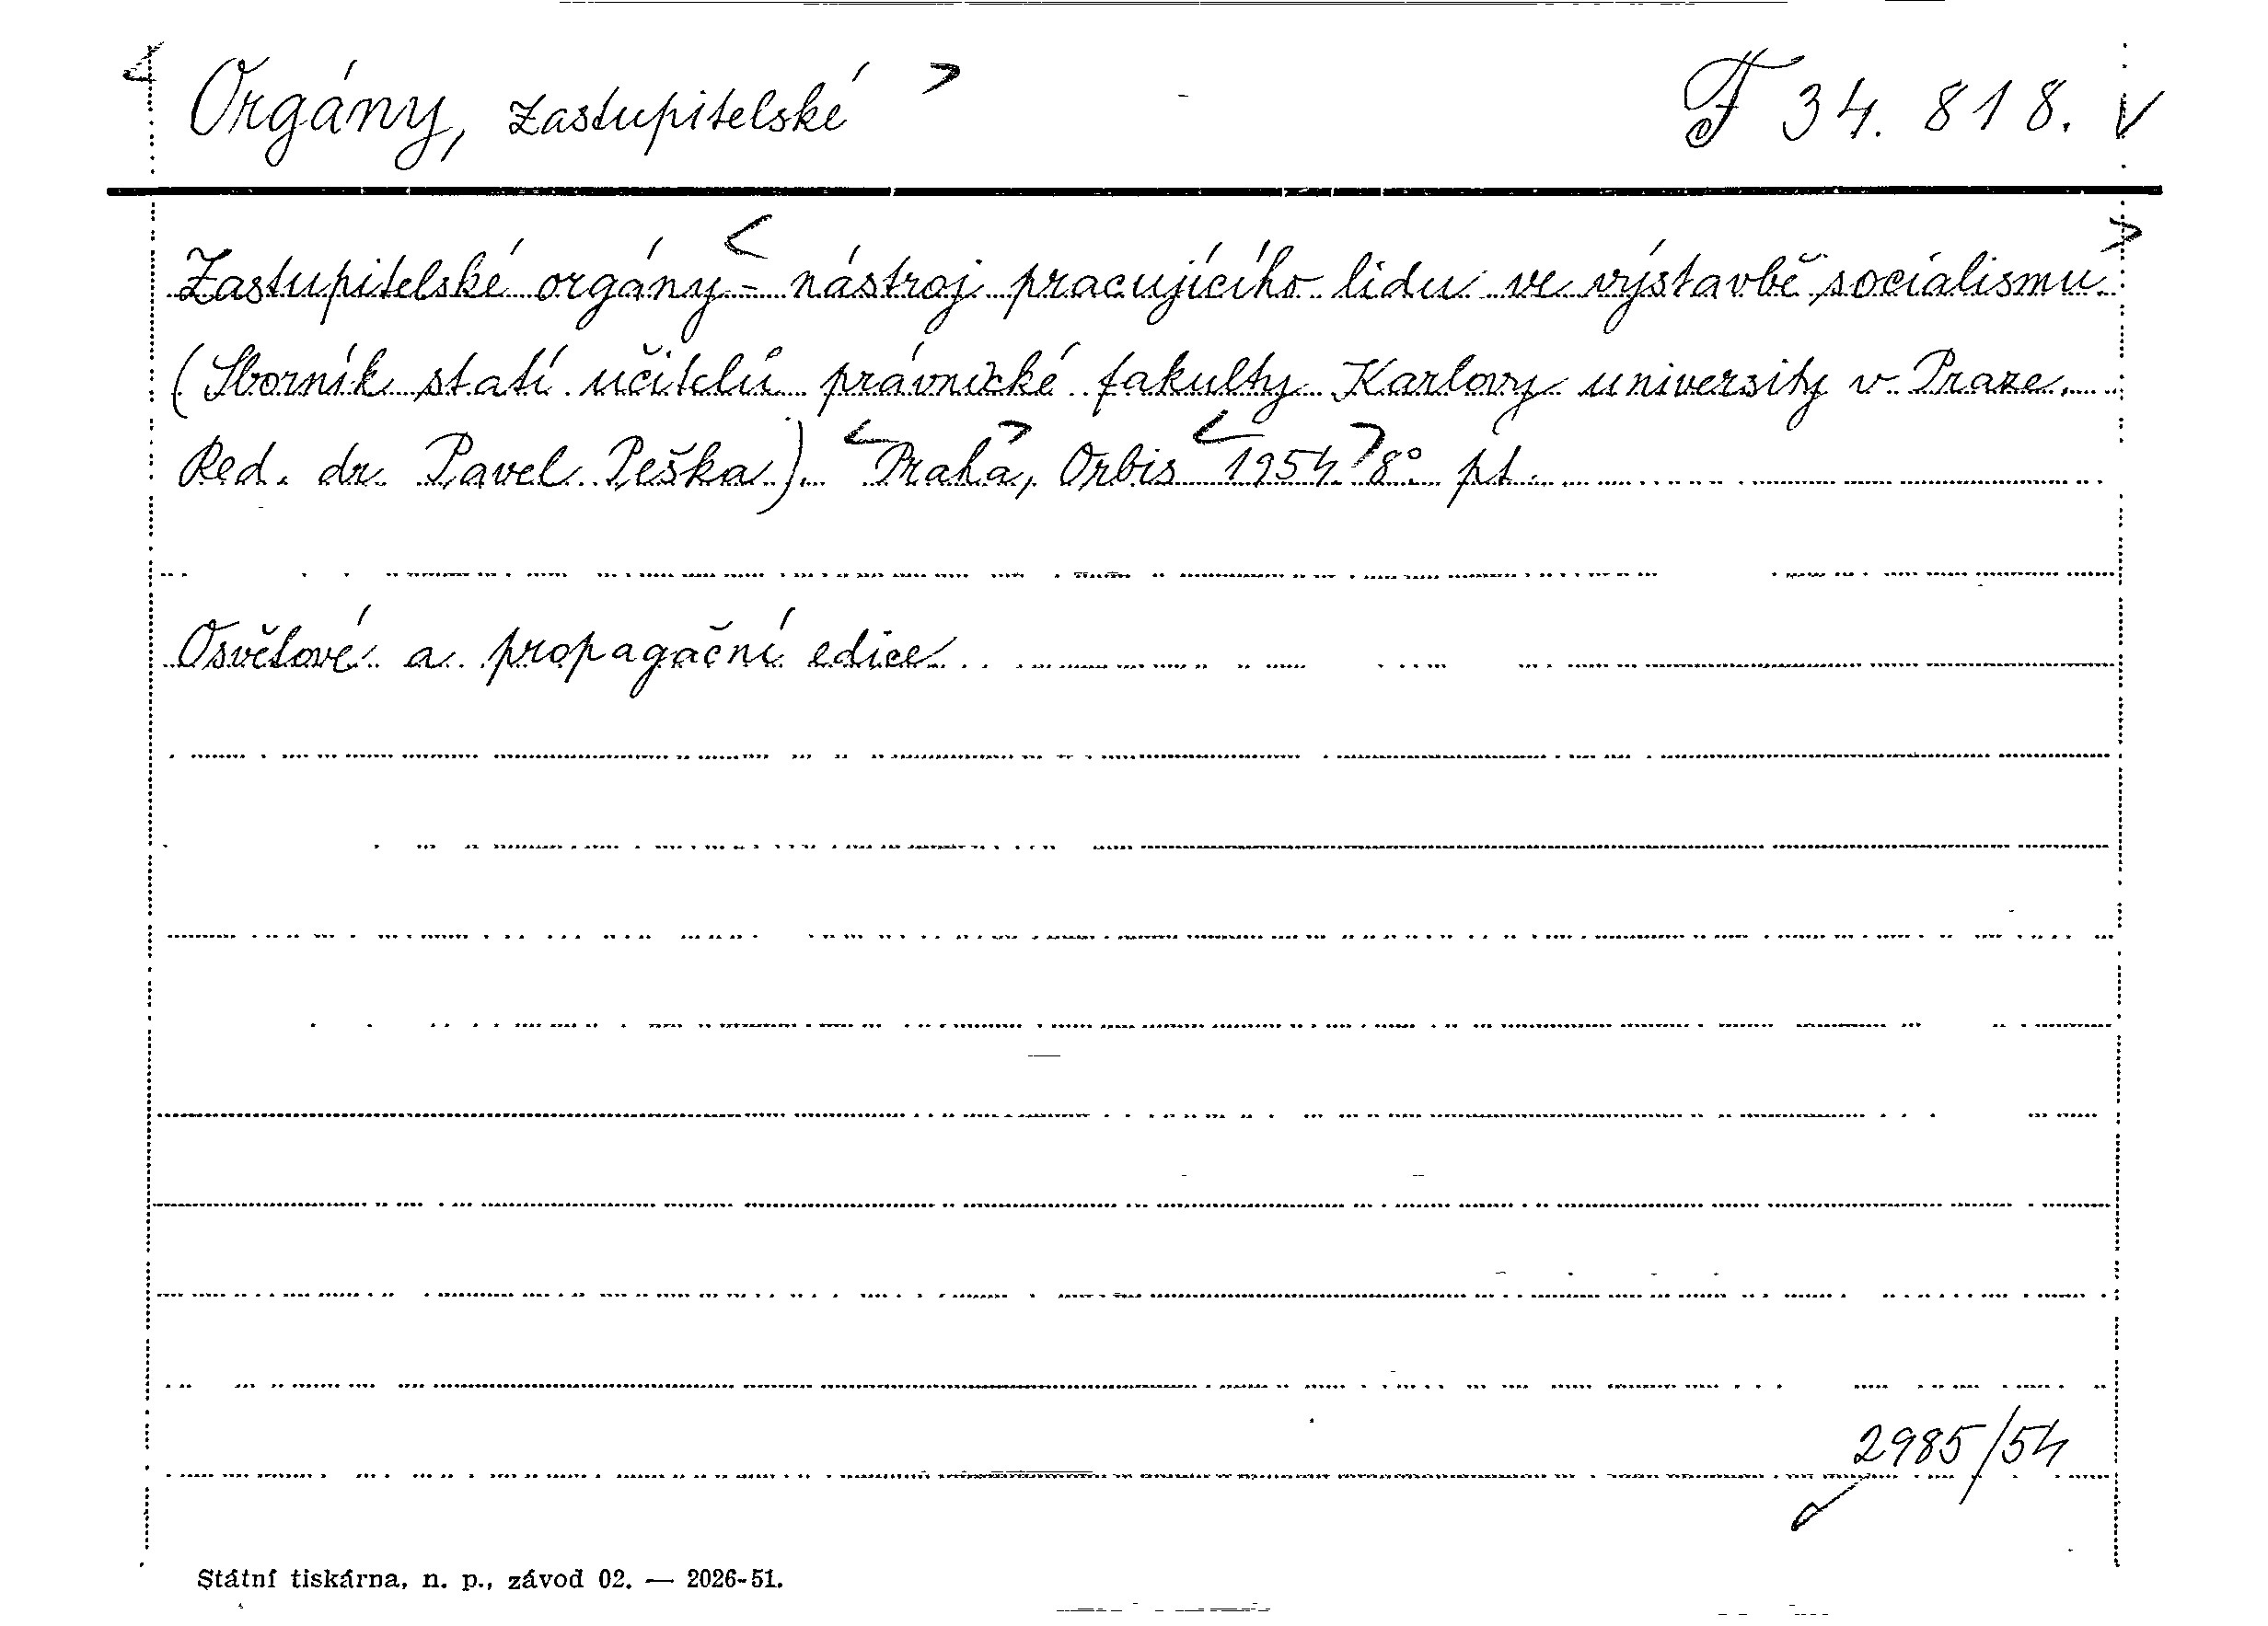 < Orgány, zastupitelské > F 34.818. V
Zastupitelské orgány < - nástroj pracujícího lidu ve výstavbě socialismu. >
(Sborník statí učitelů právnické fakulty Karlovy university v Praze.
Red. dr. Pavel Peška). < Praha >, Orbis < 1954. > 8° pt.
Osvětové a propagační edice
2985/54
Státní tiskárna, n. p., závod 02. — 2026-51.